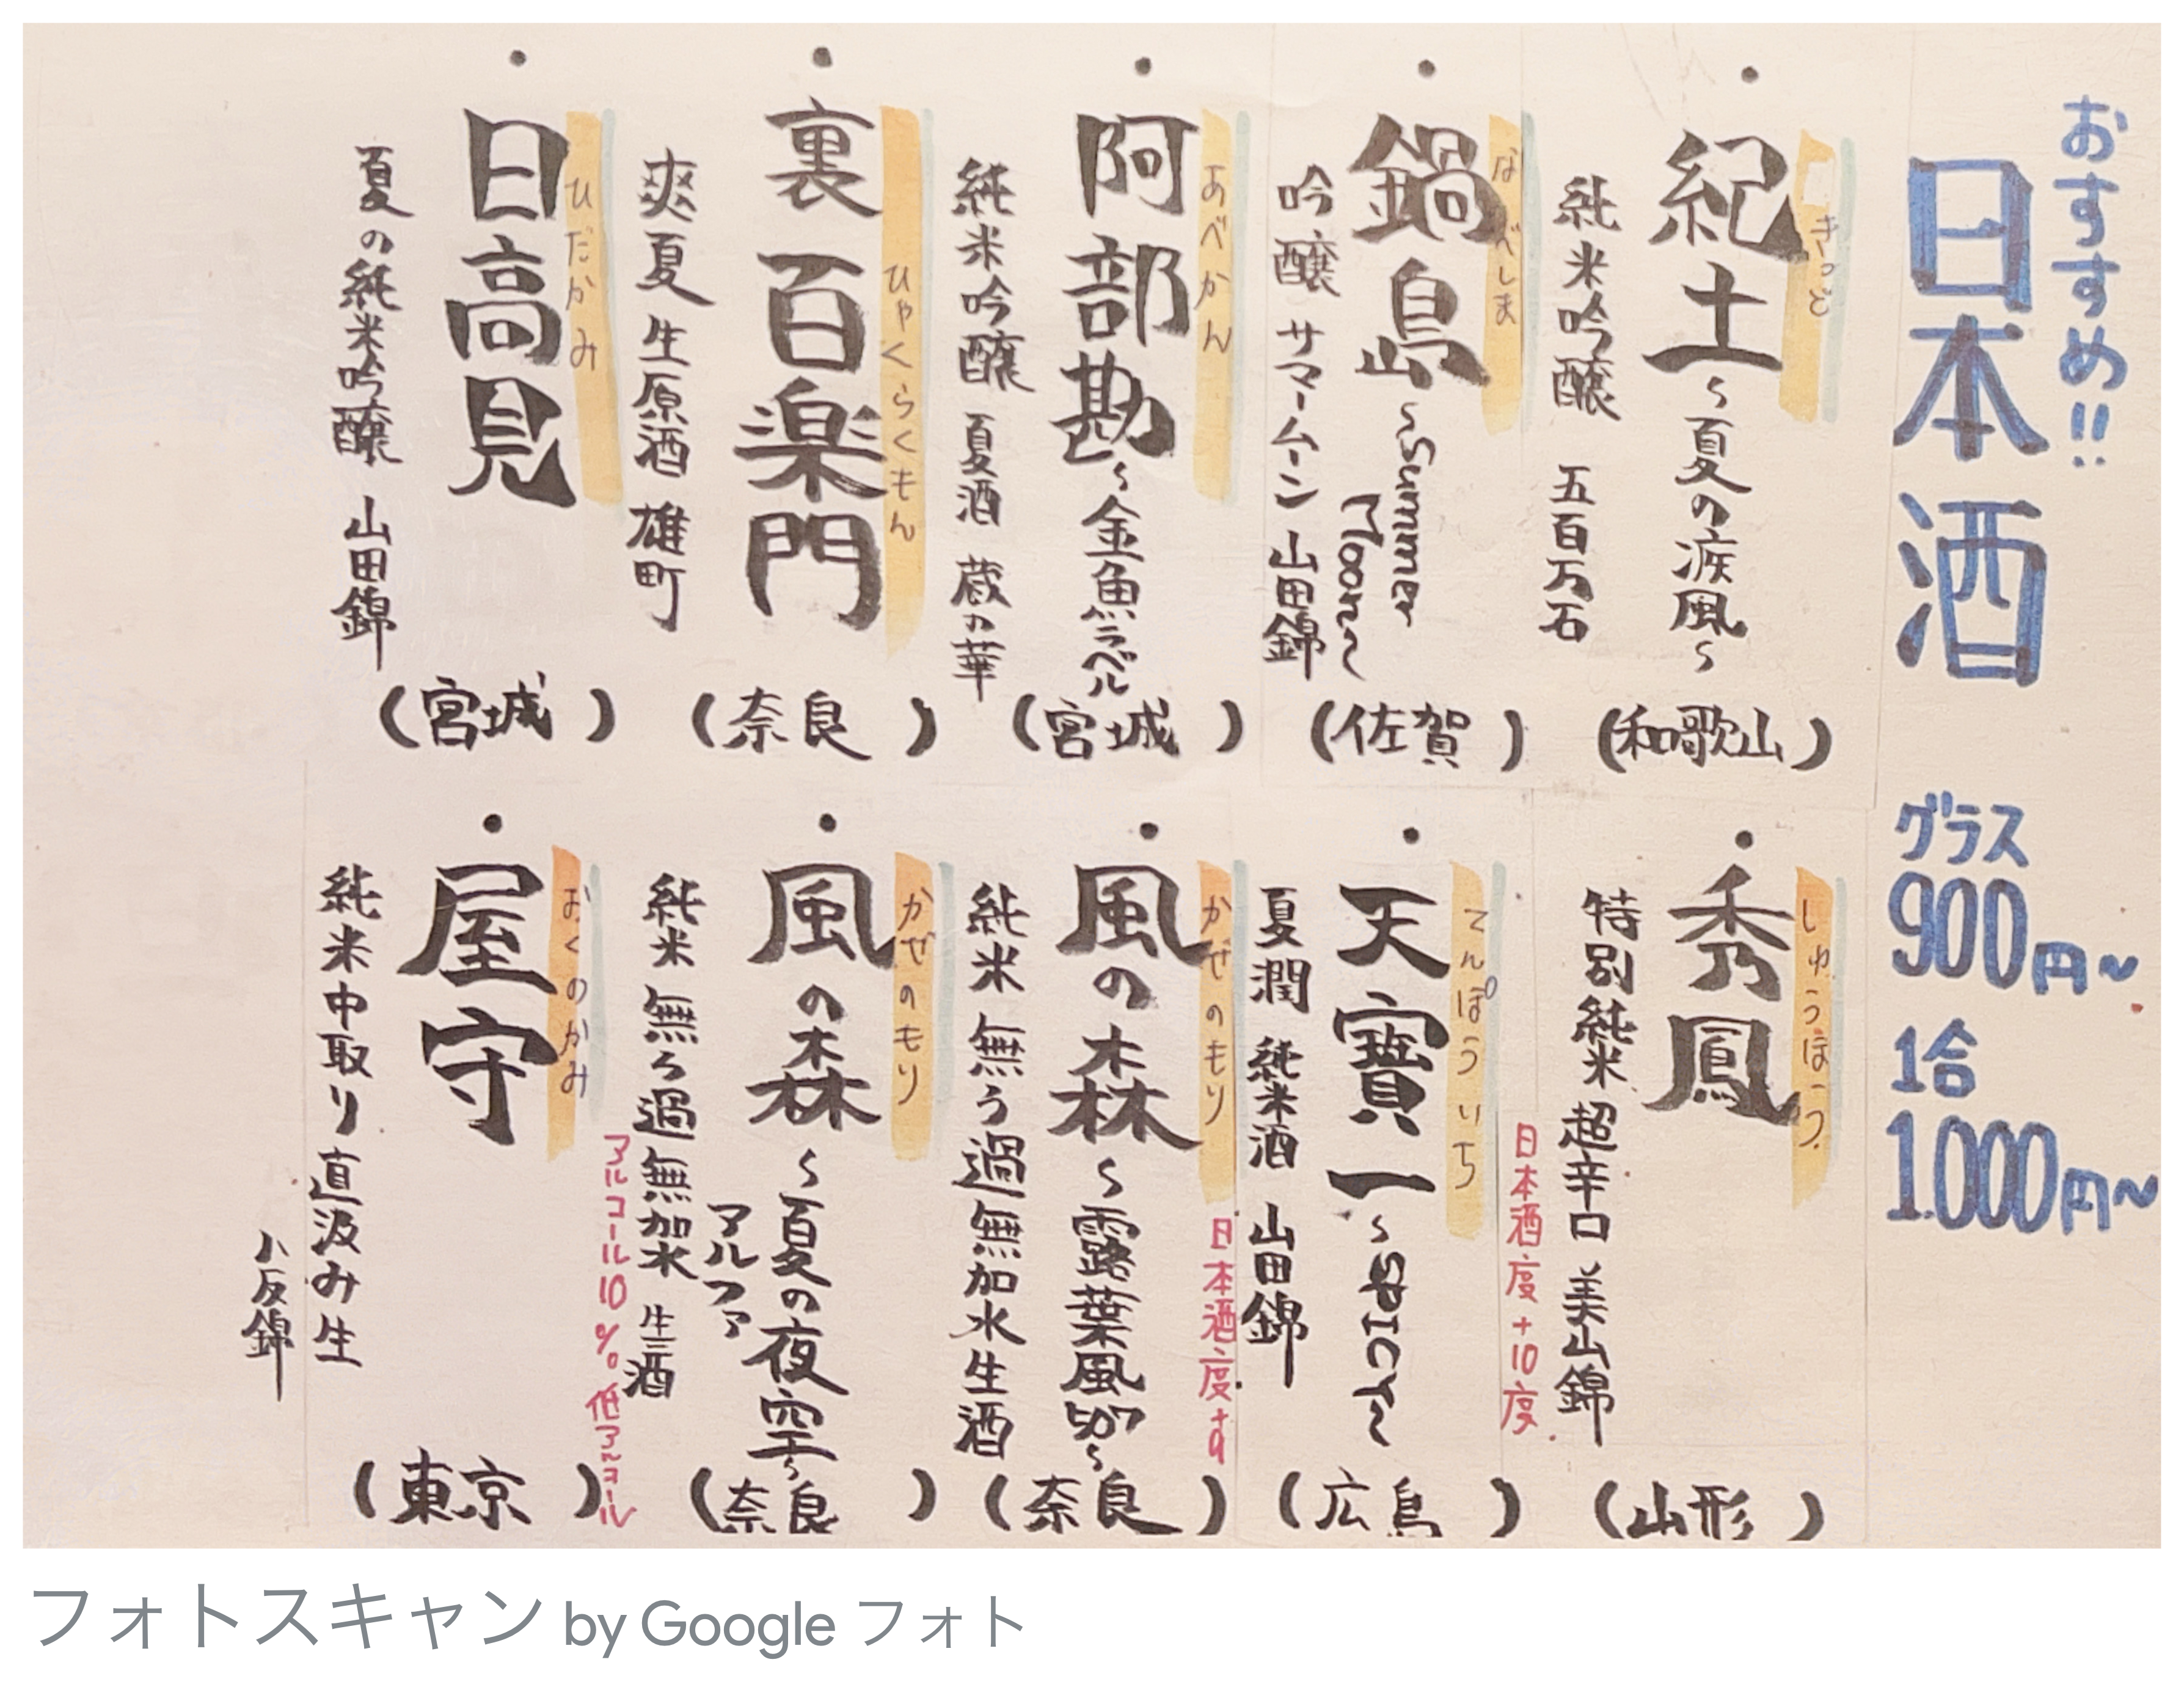 おすすめ!!
日本酒
グラス
900円~
1合
1.000円~
きっど
・紀土~夏の涼風~
純米吟醸 五百万石
(和歌山)
なべしま
・鍋島~Summer Moon~
吟醸 サマームーン 山田錦
(佐賀)
あべかん
・阿部勘~金魚ラベル
純米吟醸 夏酒 蔵の華
(宮城)
ひゃくらくもん
・裏百楽門
爽夏 生原酒 雄町
(奈良)
ひだかみ
・日高見
夏の純米吟醸 山田錦
(宮城)
しゅうほう
・秀鳳
特別純米 超辛口 美山錦
日本酒度+10度
(山形)
てんぽういち
・天寶一~SPICY~
夏潤 純米酒 山田錦
(広島)
かぜのもり
日本酒度+9
・風の森~露葉風507~
純米 無ろ過無加水生酒
(奈良)
かぜのもり
・風の森~夏の夜空~
アルファ
純米 無ろ過 無加水 生酒
アルコール10% 低アルコール
(奈良)
おくのかみ
・屋守
純米中取り直汲み生
八反錦
(東京)
フォトスキャン by Google フォト